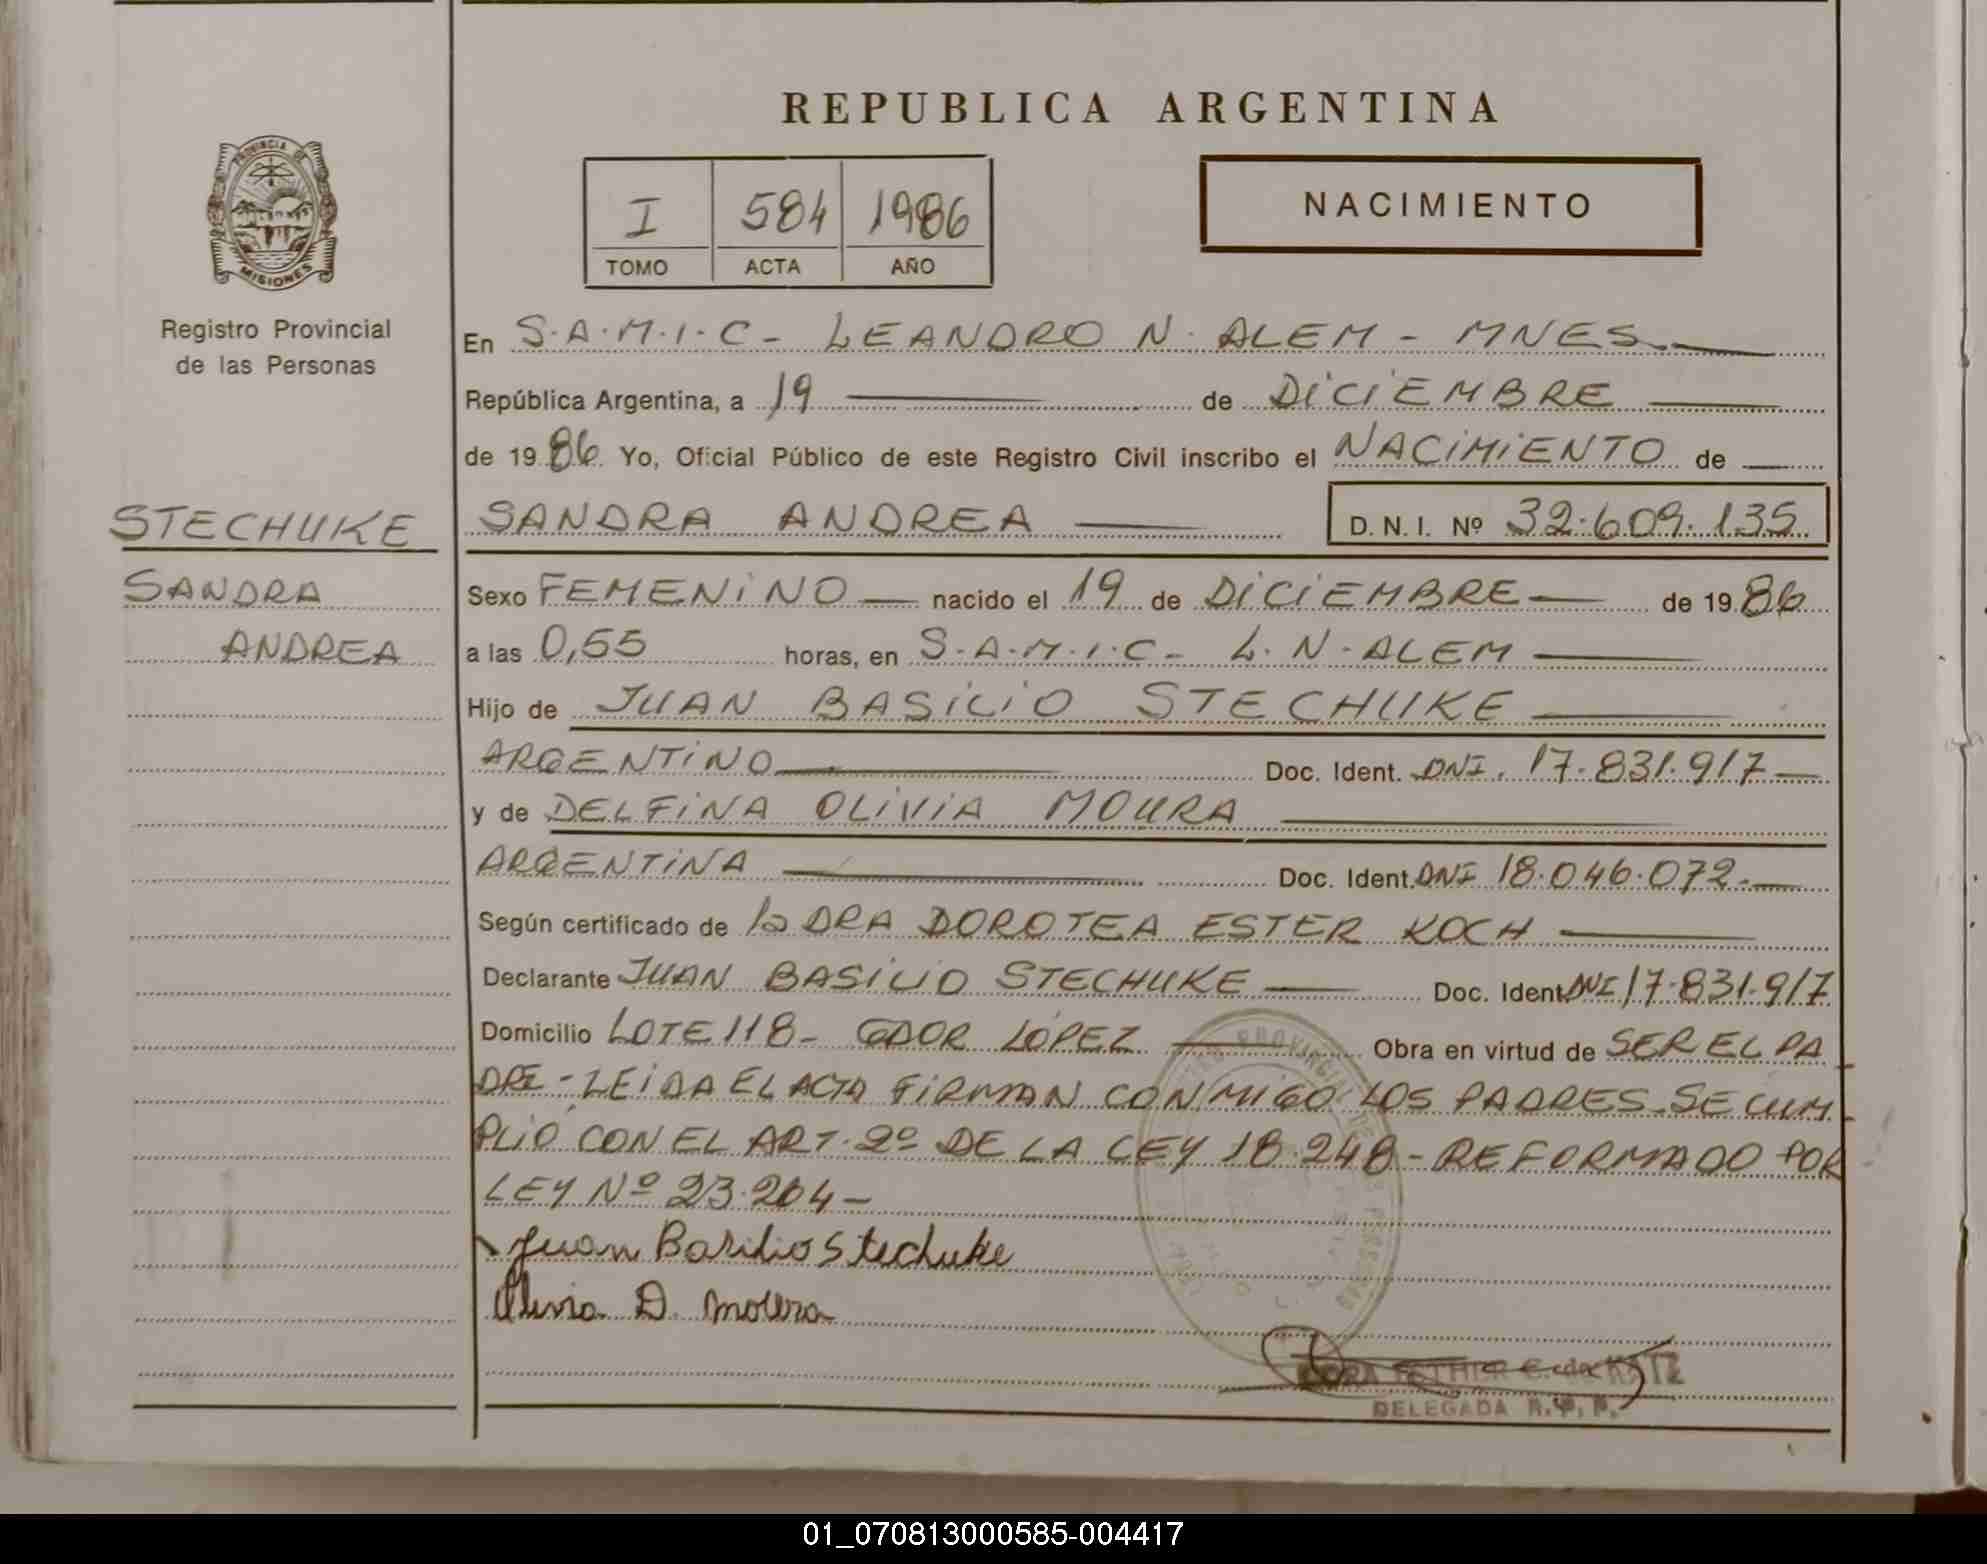 REPUBLICA ARGENTINA
PROVINCIA DE
MISIONES
Registro Provincial
de las Personas
I 584 1986
TOMO ACTA AÑO
NACIMIENTO
En S.A.M.I.C- LEANDRO N. ALEM - MNES.
República Argentina, a 19 de DICIEMBRE
de 1986 Yo, Oficial Público de este Registro Civil inscribo el NACIMIENTO de
STECHUKE
SANDRA ANDREA D.N.I. Nº 32.609.135
SANDRA
ANDREA
Sexo FEMENINO nacido el 19 de DICIEMBRE de 1986
a las 0,55 horas, en S.A.M.I.C- L. N. ALEM
Hijo de JUAN BASILIO STECHUKE
ARGENTINO Doc. Ident. DNI. 17.831.917
y de DELFINA OLIVIA MOURA
ARGENTINA Doc. Ident. DNI 18.046.072.
Según certificado de la DRA DOROTEA ESTER KOCH
Declarante JUAN BASILIO STECHUKE Doc. Ident. DNI 17.831.917
Domicilio LOTE 118- GDOR LÓPEZ Obra en virtud de SER EL PA
DRE - LEIDA EL ACTA FIRMAN CONMIGO LOS PADRES. SE CUM
PLIÓ CON EL ART. 2º DE LA LEY 18.248 - REFORMADO POR
LEY Nº 23.264 -
Juan Basilio Stechuke
Olivia D. Moura
ESTHER KATZ
DELEGADA R.P.P.
01_070813000585-004417